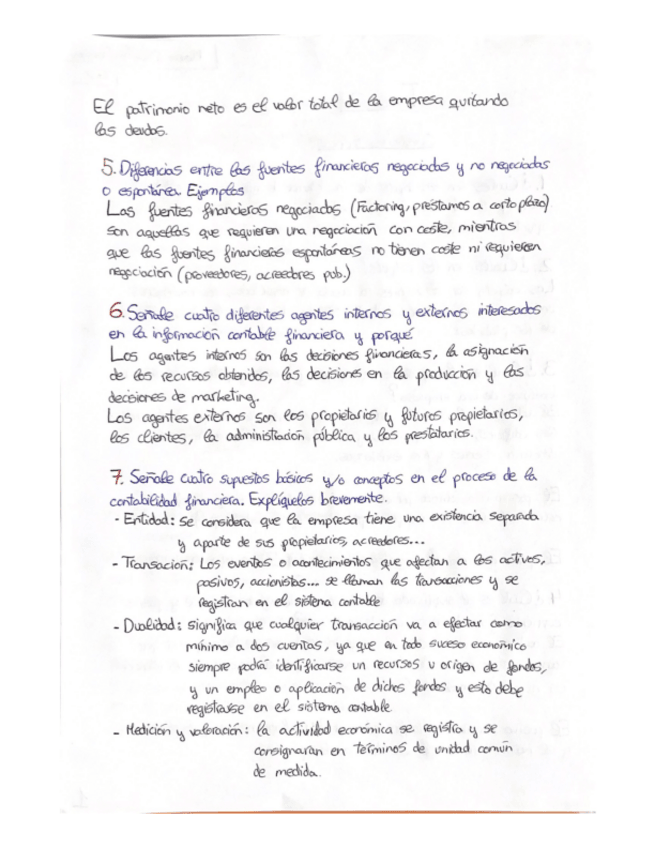 El patrimonio neto es el valor total de la empresa quitando
las deudas.
5. Diferencias entre las fuentes financieras negociadas y no negociadas
o espontánea. Ejemplos
Las fuentes financieras negociadas (Factoring, préstamos a corto plazo)
son aquellas que requieren una negociación con coste, mientras
que las fuentes financieras espontáneas no tienen coste ni requieren
negociación (proveedores, acreedores pub.)
6. Señale cuatro diferentes agentes internos y externos interesados
en la información contable financiera y porqué
Los agentes internos son las decisiones financieras, la asignación
de los recursos obtenidos, las decisiones en la producción y las
decisiones de marketing.
Los agentes externos son los propietarios y futuros propietarios,
los clientes, la administración pública y los prestatarios.
7. Señale cuatro supuestos básicos y/o conceptos en el proceso de la
contabilidad financiera. Explíquelos brevemente.
- Entidad: se considera que la empresa tiene una existencia separada
y aparte de sus propietarios, acreedores...
- Transación: Los eventos o acontecimientos que afectan a los activos,
pasivos, accionistas... se llaman las transacciones y se
registran en el sistema contable
- Dualidad: significa que cualquier transacción va a efectar como
mínimo a dos cuentas, ya que en todo suceso económico
siempre podrá identificarse un recursos u origen de fondos,
y un empleo o aplicación de dichos fondos y esto debe
registrarse en el sistema contable.
- Medición y valoración: la actividad económica se registra y se
consignaran en términos de unidad común
de medida.